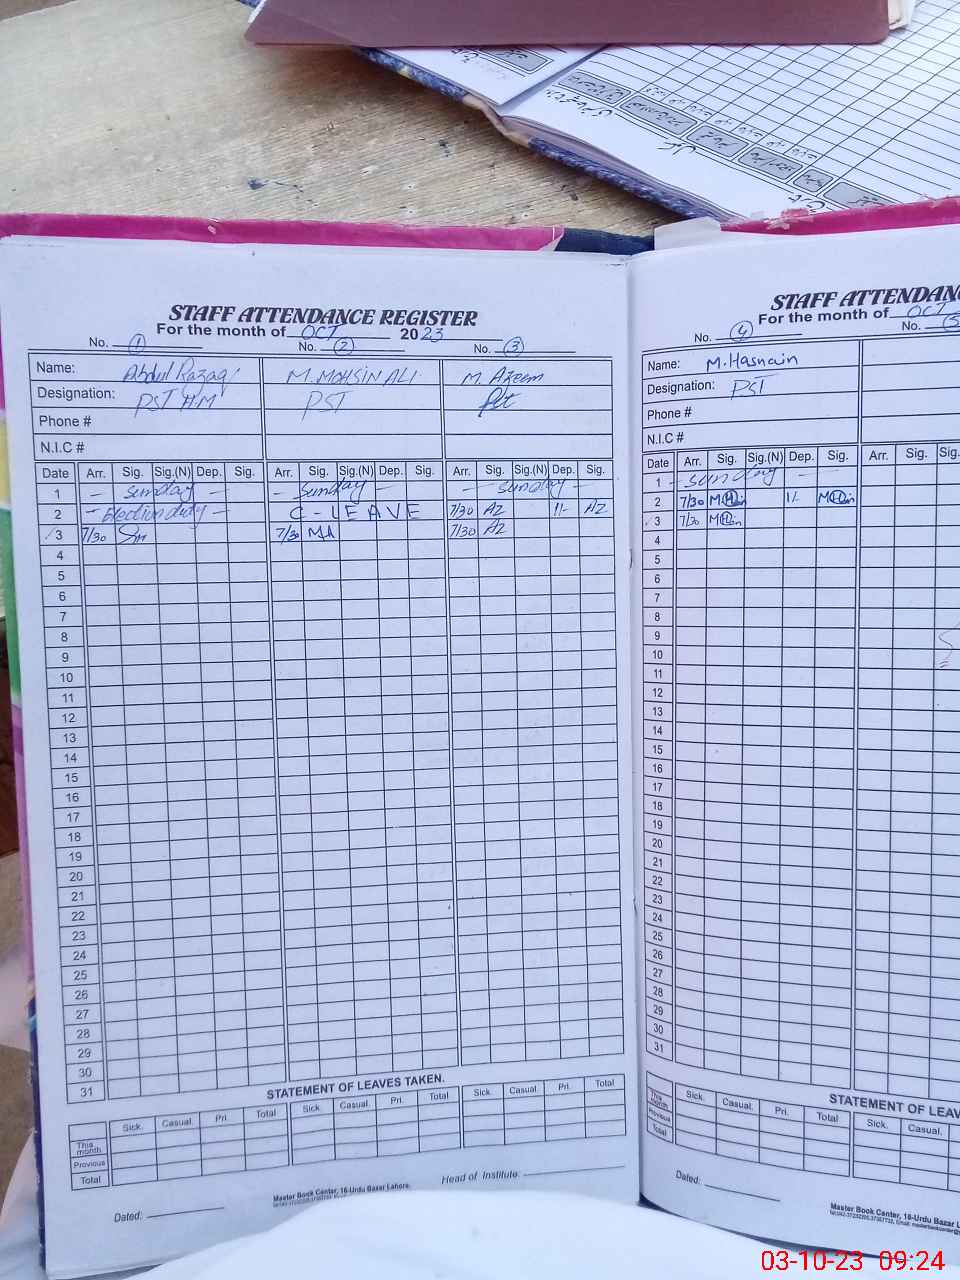 STAFF ATTENDANCE REGISTER
For the month of OCT 2023
No. 1 No. 2 No. 3
Name: Abdul Razaq M. MOHSIN ALI M. Azeem
Designation: PST HM PST
Phone #
N.I.C #
Date Arr. Sig. Sig.(N) Dep. Sig. Arr. Sig. Sig.(N) Dep. Sig. Arr. Sig. Sig.(N) Dep. Sig.
1 — Sunday — — Sunday — — Sunday —
2 — Election duty — C - L E A V E 7/30 AZ 1/- AZ
3 7/30 7/30 MA 7/30 AZ
4
5
6
7
8
9
10
11
12
13
14
15
16
17
18
19
20
21
22
23
24
25
26
27
28
29
30
31
STATEMENT OF LEAVES TAKEN.
Sick. Casual. Pri. Total Sick. Casual. Pri. Total Sick. Casual. Pri. Total
This month
Previous
Total
Dated: Master Book Center, 16-Urdu Bazar Lahore. Head of Institute.
STAFF ATTENDAN
For the month of OCT
No. 4 No. 5
Name: M. Hasnain
Designation: PST
Phone #
N.I.C #
Date Arr. Sig. Sig.(N) Dep. Sig. Arr. Sig. Sig.
1 — Sunday —
2 7/30 1/-
3 7/30
4
5
6
7
8
9
10
11
12
13
14
15
16
17
18
19
20
21
22
23
24
25
26
27
28
29
30
31
STATEMENT OF LEAV
Sick. Casual. Pri. Total Sick. Casual.
This month
Previous
Total
Dated:
Master Book Center, 16-Urdu Bazar L
03-10-23 09:24